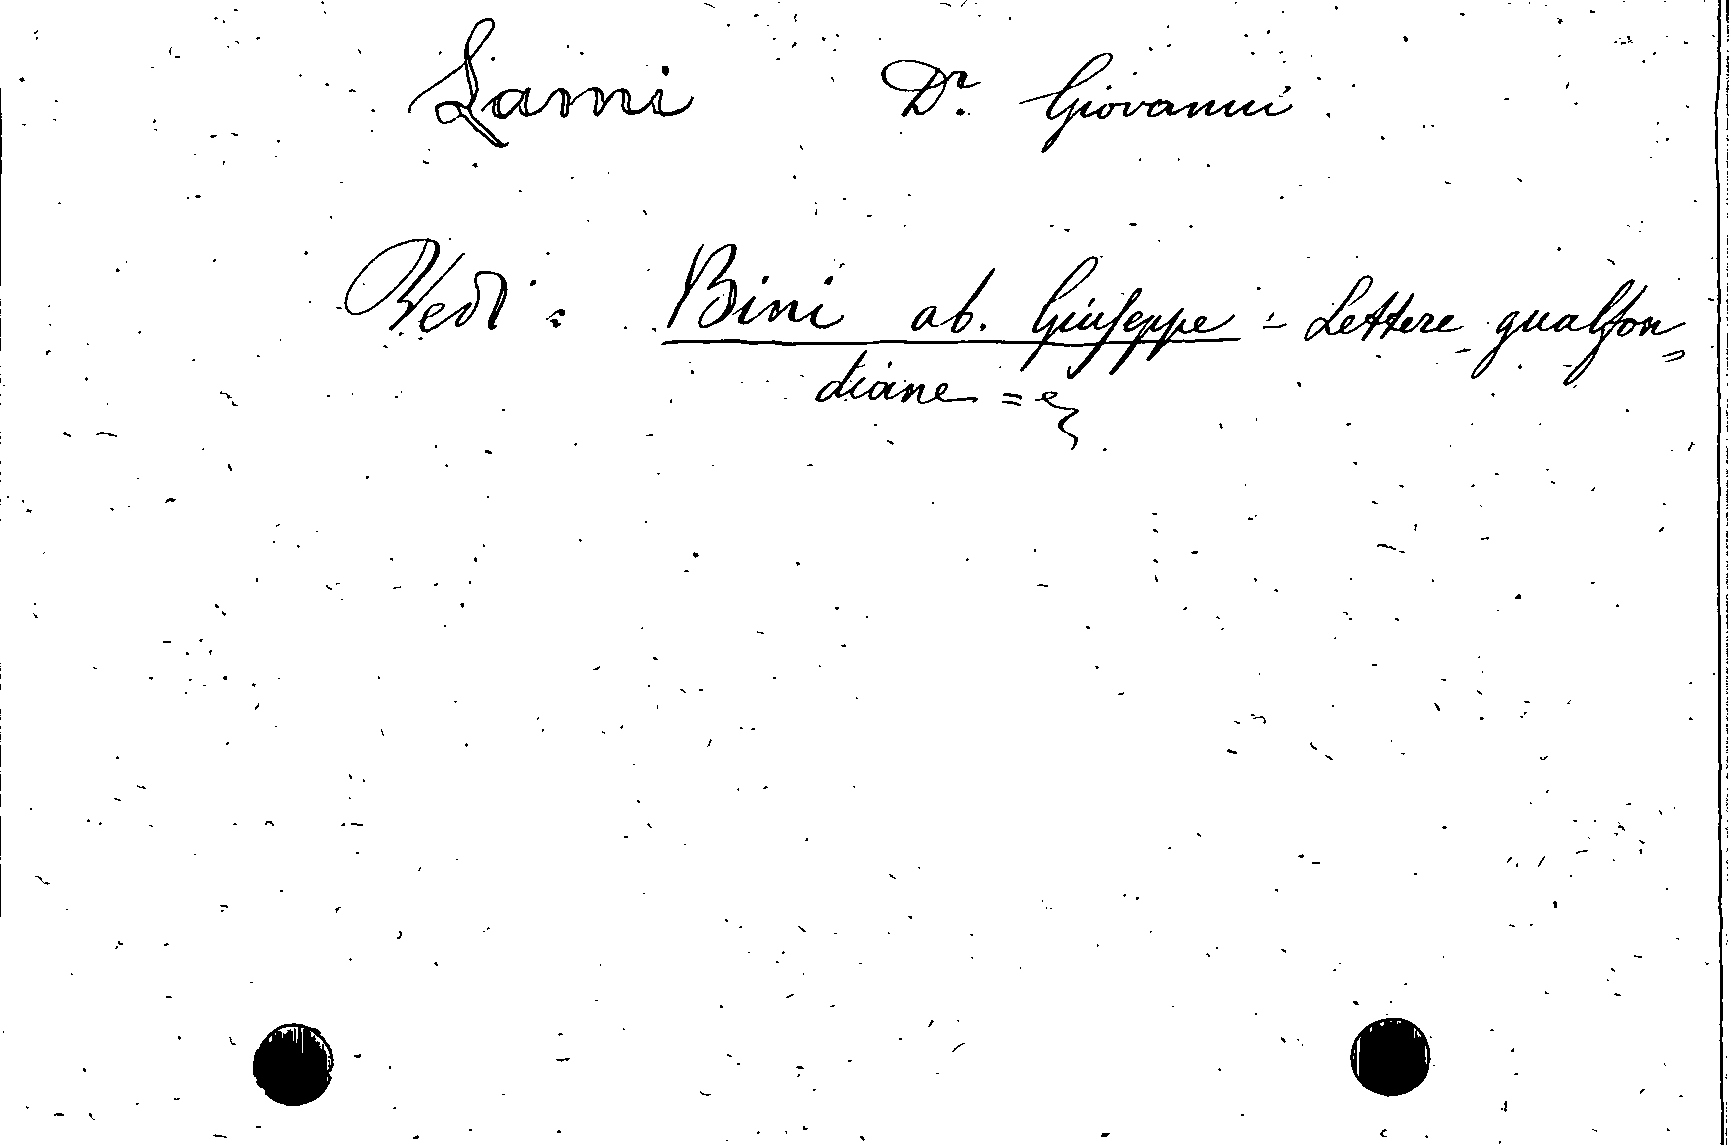 Lami Dr. Giovanni
Vedi = Bini ab. Giuseppe = Lettere gualfon=
diane =